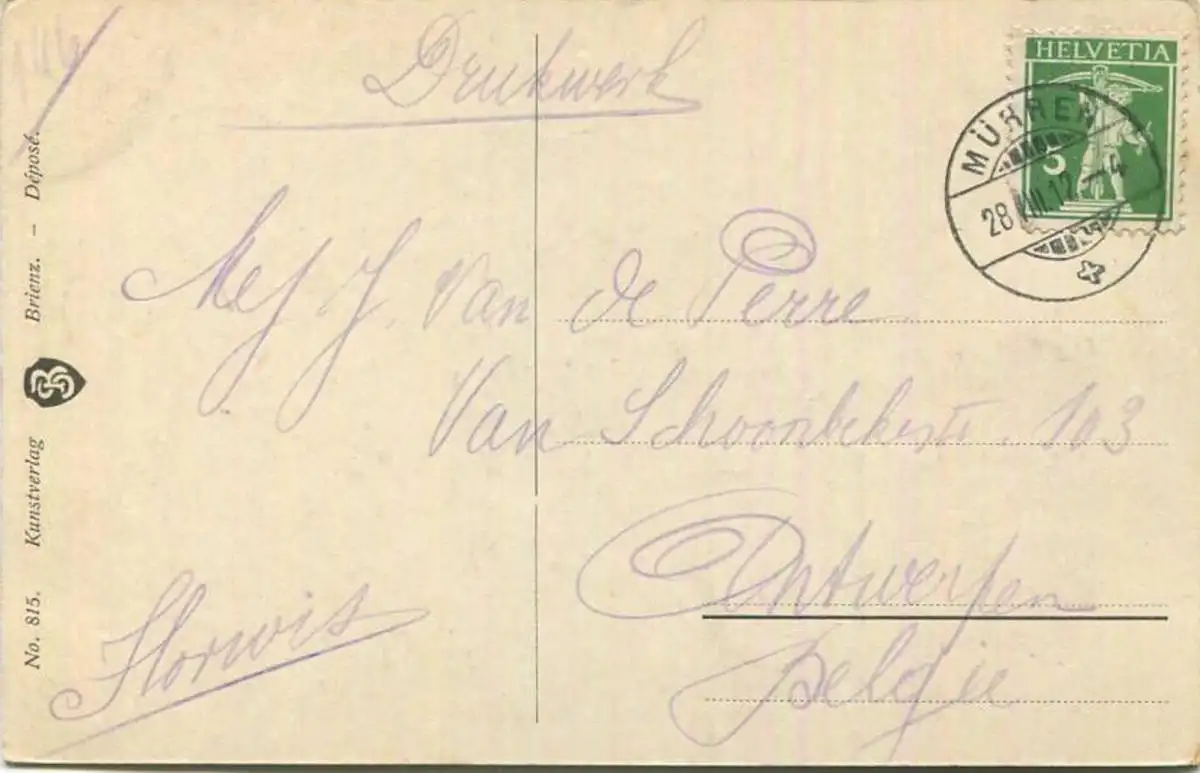 Drukwerk
HELVETIA
5
MÜRREN
28 VIII.12-4
Mej J. Van de Perre
Van Schoonbekestr. 103
Antwerpen
België
No. 815. Kunstverlag Brienz. - Déposé.